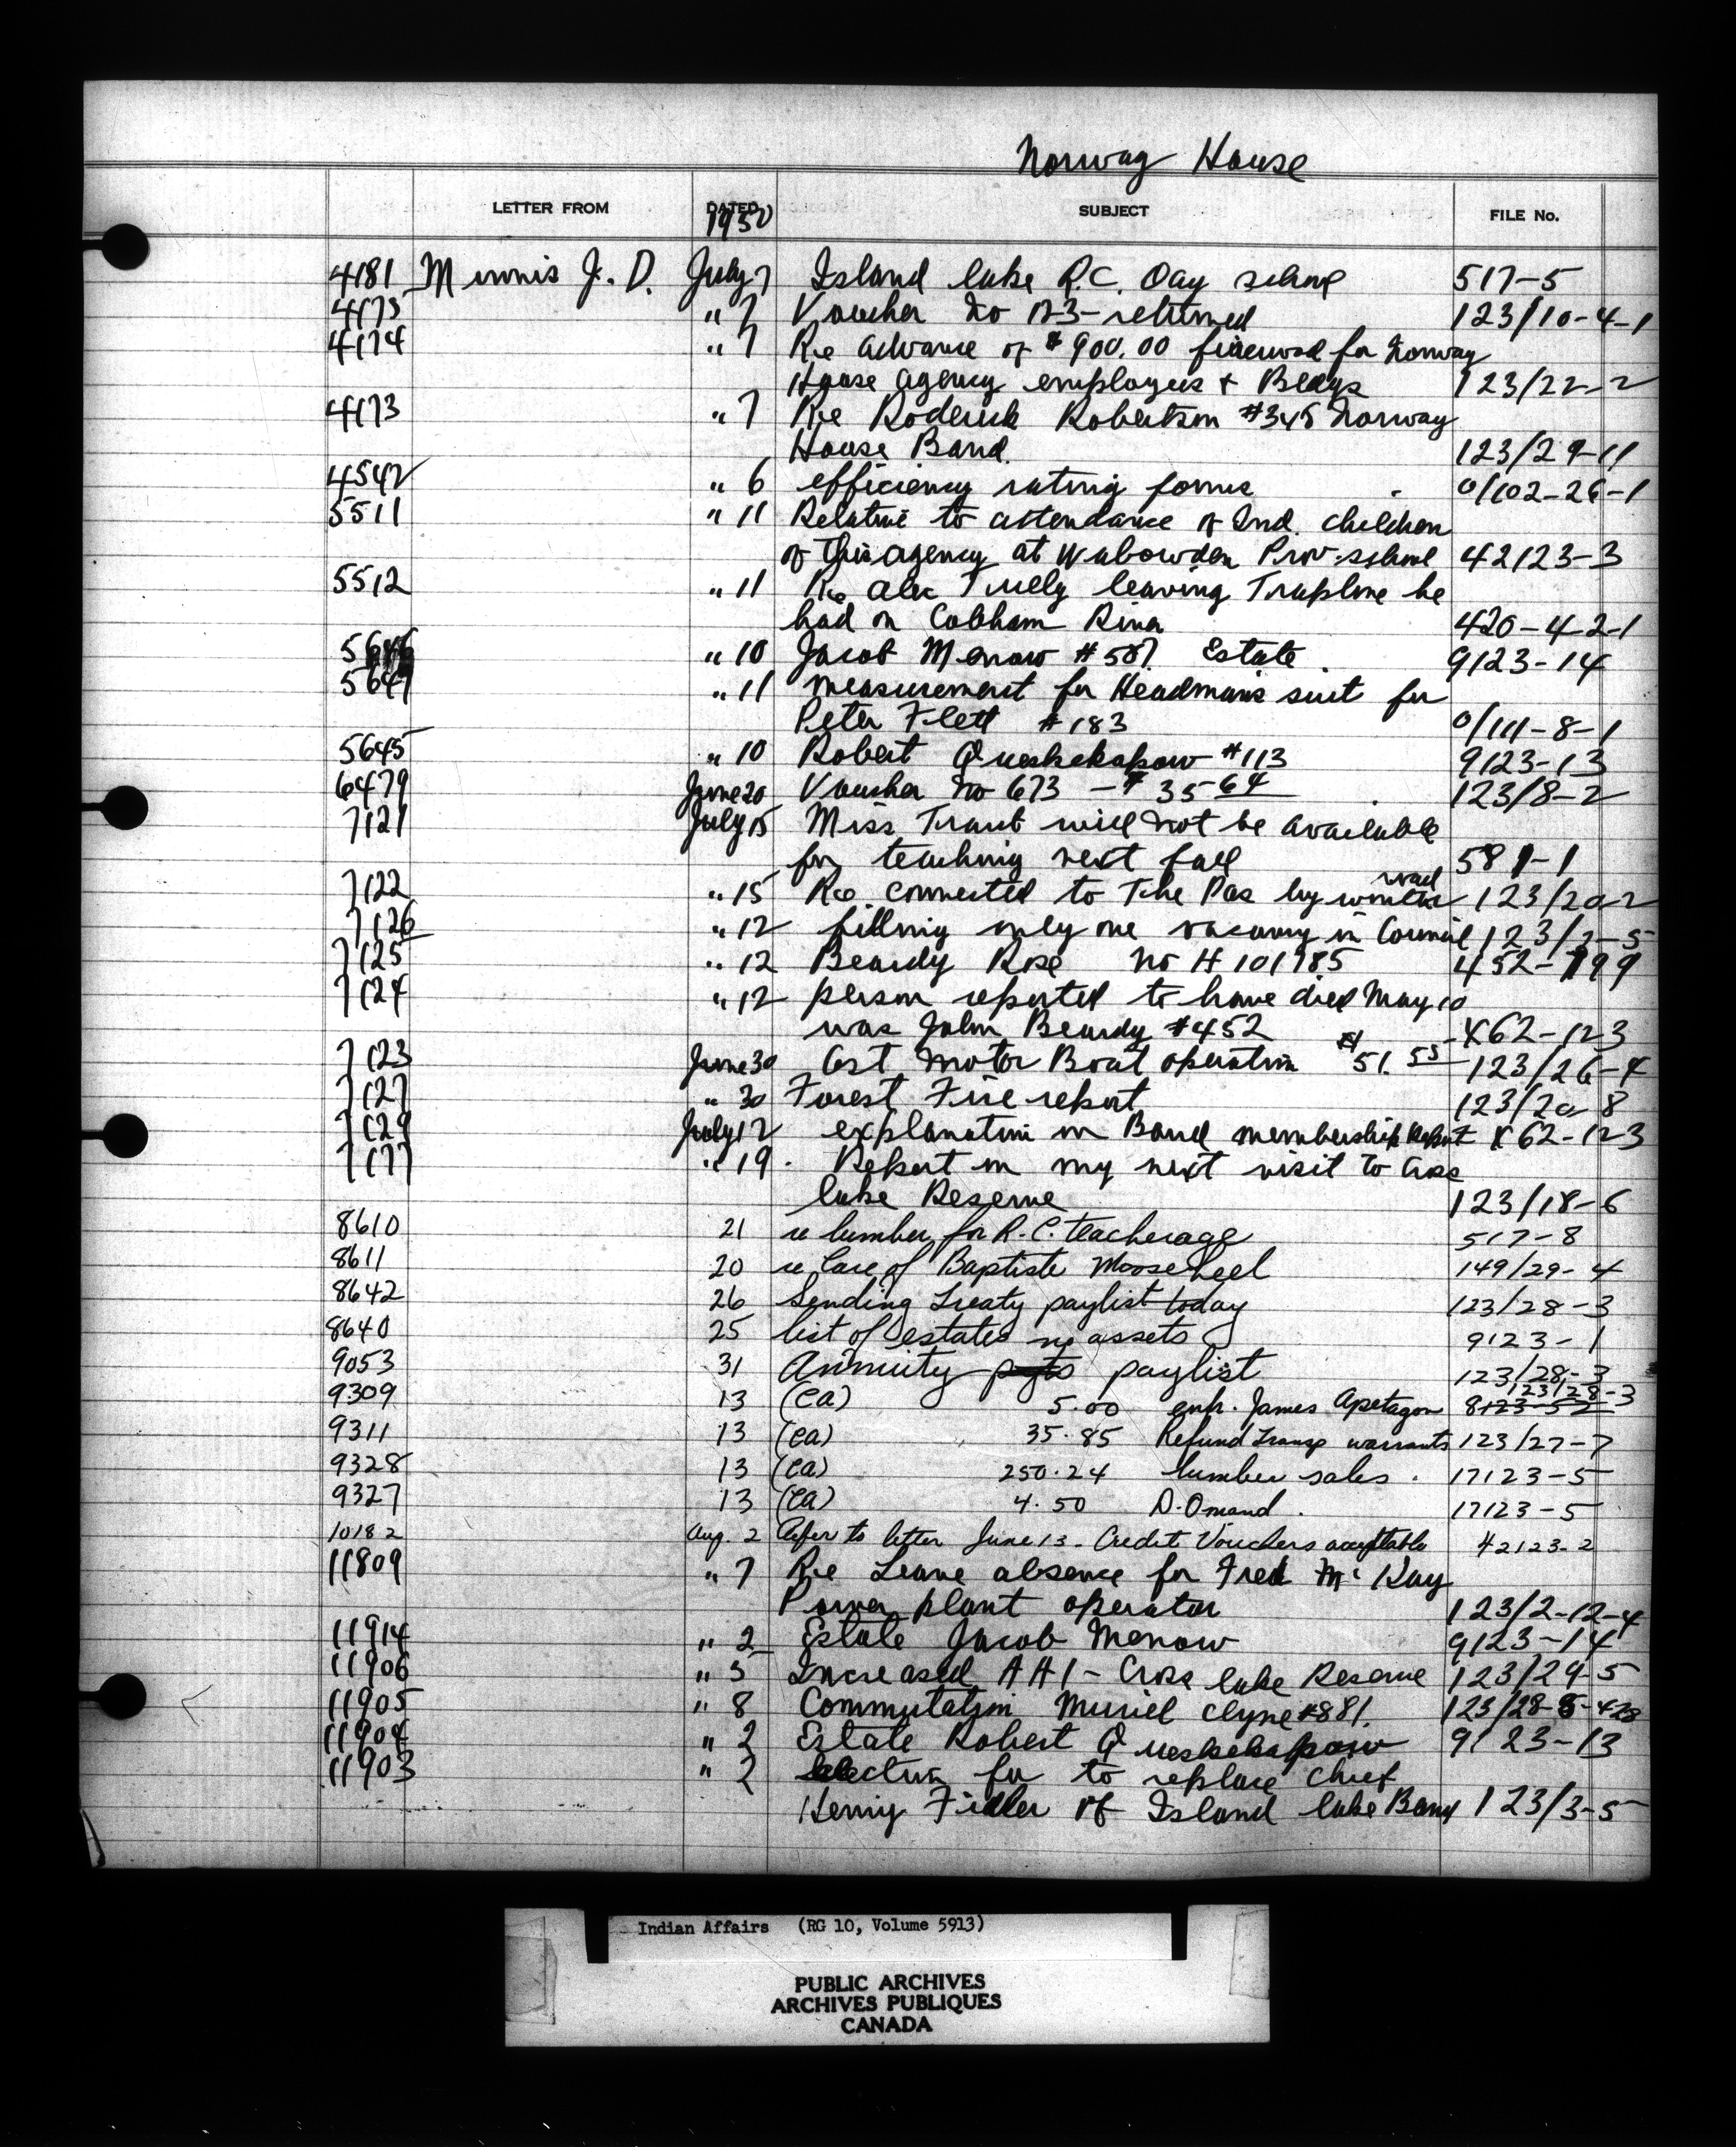 Norway House
LETTER FROM DATED SUBJECT FILE No.
1950
4181 Minnis J. D. July 7 Island lake R.C. Day school 517-5
4175 " 7 Voucher No 123 - returned 123/10-4-1
4174 " 7 Re advance of $900.00 firewood for Norway
House agency employees & Bldgs 123/22-2
4173 " 7 Re Roderick Robertson #345 Norway
House Band. 123/29-11
4542 " 6 efficiency rating forms 0/102-26-1
5511 " 11 Relative to attendance of Ind. children
of this agency at Wabowden Prov. school 42123-3
5512 " 11 Re Alex leaving Trapline he
had on Cobham River 420-4-2-1
5646 " 10 Jacob Menow #587. Estate. 9123-14
5647 " 11 measurement for Headman's suit for
Peter Flett #183 0/111-8-1
5645 " 10 Robert Queskekapow #113 9123-13
6479 June 20 Voucher No 673 - $35 64 123/8-2
7121 July 15 Miss will not be available
for teaching next fall 581-1
7122 " 15 Re connected to The Pas by road 123/20-2
7126 " 12 filling only one vacancy in Council 123/3-5
7125 " 12 Beardy Rose No H 101785 452-199
7124 " 12 person reported to have died May 10
was John Beardy #452 X62-123
7123 June 30 Cost Motor Boat operation $51.55 123/26-4
7127 " 30 Forest Fire report 123/20-8
7129 July 12 explanation on Band membership Report X62-123
7177 " 19. Report on my next visit to Cross
lake Reserve 123/18-6
8610 21 re lumber for R.C. teacherage 517-8
8611 20 re Care of Baptiste Mooseheel 149/29-4
8642 26 Sending Treaty paylist today 123/28-3
8640 25 list of estates no assets 9123-1
9053 31 Annuity pyts paylist 123/28-3
123/28-3
9309 13 (CA) 5.00 enfr. James Apetagon 8123-52
9311 13 (CA) 35.85 Refund Transp warrants 123/27-7
9328 13 (CA) 250.24 lumber sales. 17123-5
9327 13 (CA) 4.50 D. Omand. 17123-5
10182 Aug. 2 Refer to letter June 13 - Credit Vouchers acceptable 42123-2
11809 " 7 Re Leave absence for Fred McKay
Power plant operator 123/2-12-4
11914 " 2 Estate Jacob Menow 9123-14
11906 " 5 Increased - Cross lake Reserve 123/29-5
11905 " 8 Commutation Muriel Clyne #881. 123/28-8-428
11904 " 2 Estate Robert Queskekapow 9123-13
11903 " 2 election for to replace Chief
Henry Fidler of Island lake Band 123/3-5
Indian Affairs (RG 10, Volume 5913)
PUBLIC ARCHIVES
ARCHIVES PUBLIQUES
CANADA